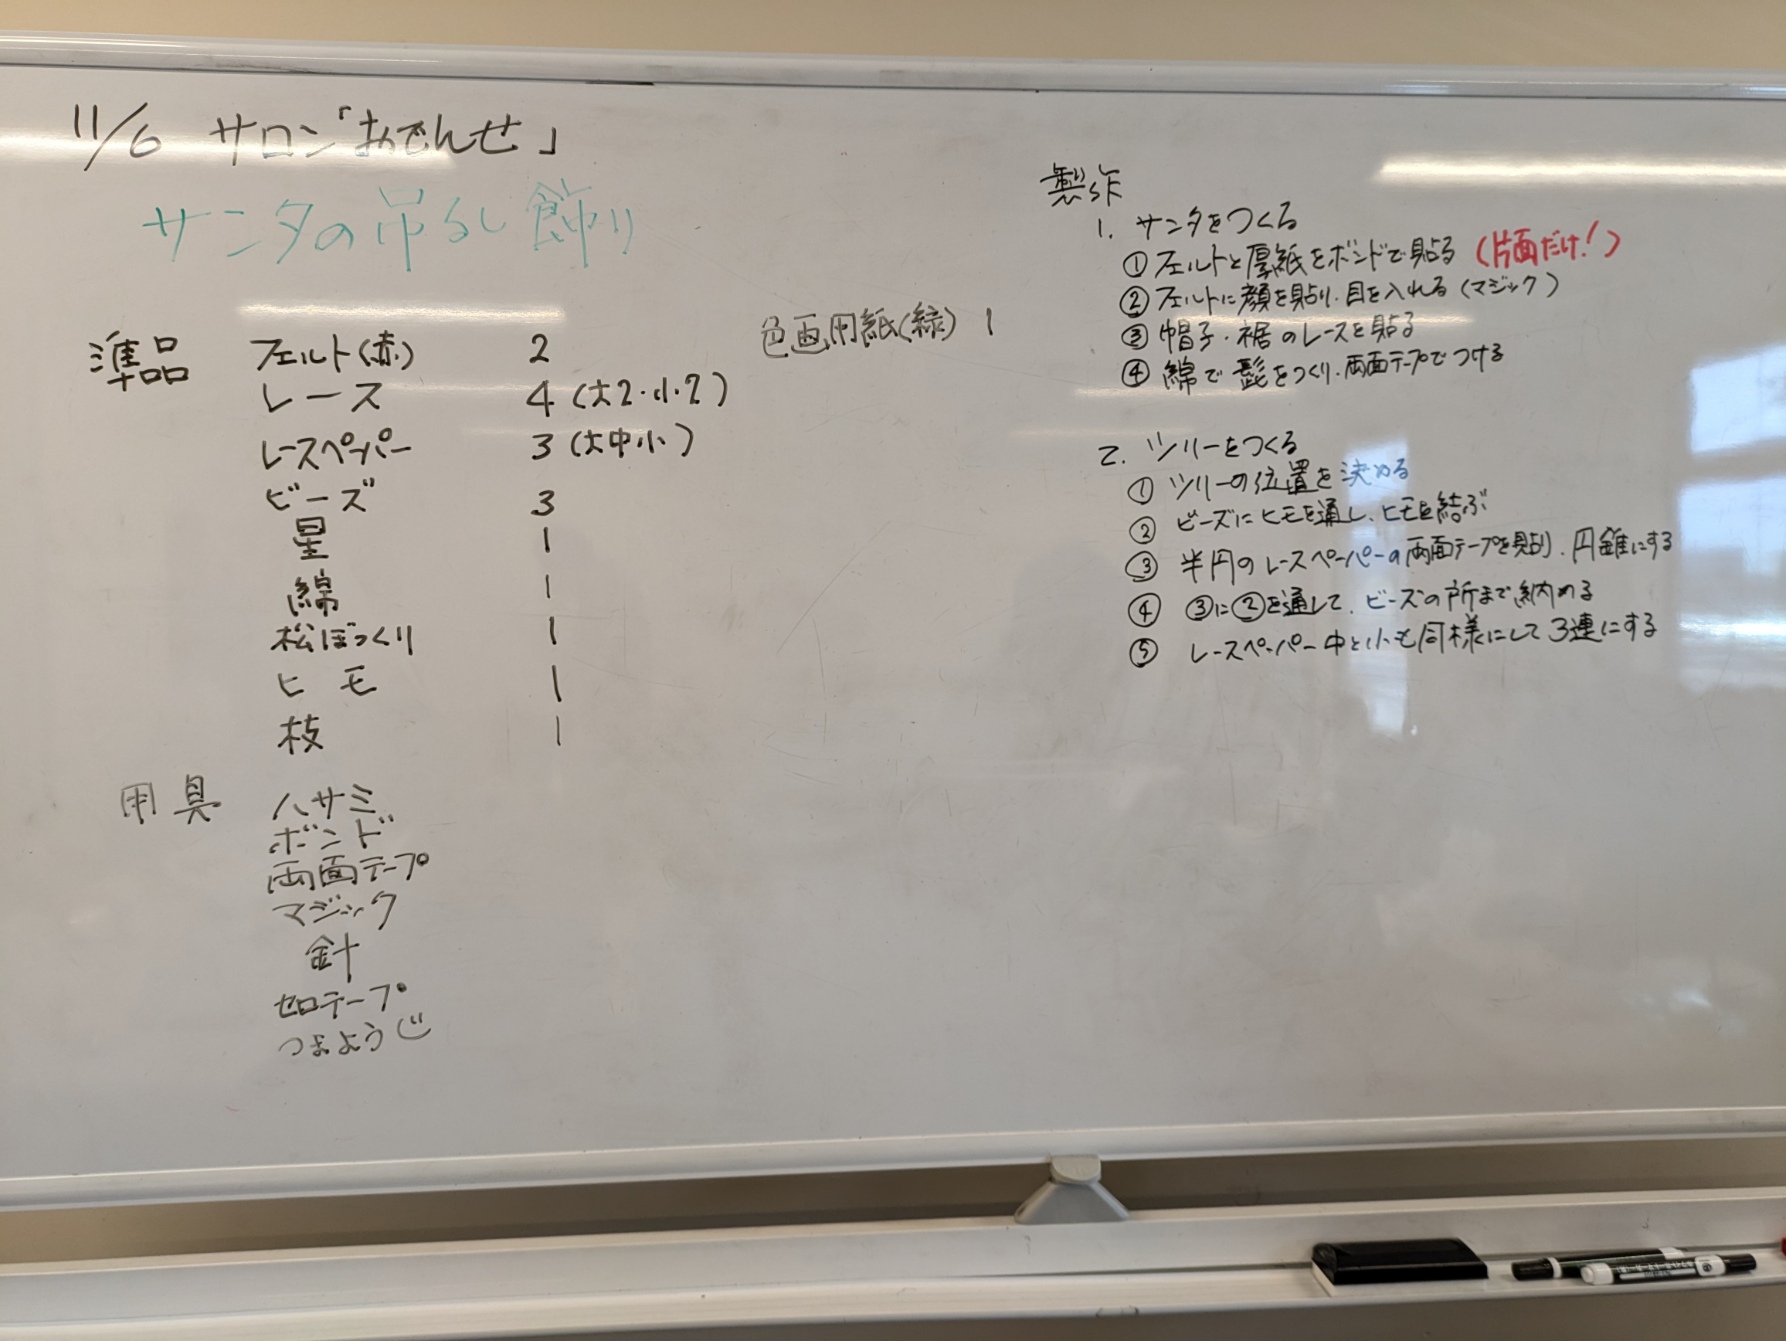 11/6 サロン「おでんせ」
サンタの吊るし飾り
準品 フェルト(赤) 2
レース 4 (大2・小・2)
レースペーパー 3 (大中小)
ビーズ 3
星 1
綿 1
松ぼっくり 1
ヒモ 1
枝 1
色画用紙(緑) 1
用具 ハサミ
ボンド
両面テープ
マジック
針
セロテープ
つまようじ
製作
1. サンタをつくる
① フェルトと厚紙をボンドで貼る (片面だけ!)
② フェルトに顔を貼り、目を入れる (マジック)
③ 帽子・裾のレースを貼る
④ 綿で髭をつくり、両面テープでつける
2. ツリーをつくる
① ツリーの位置を決める
② ビーズにヒモを通し、ヒモを結ぶ
③ 半円のレースペーパーの両面テープを貼り、円錐にする
④ ③に②を通して、ビーズの所まで納める
⑤ レースペーパー中と小も同様にして3連にする